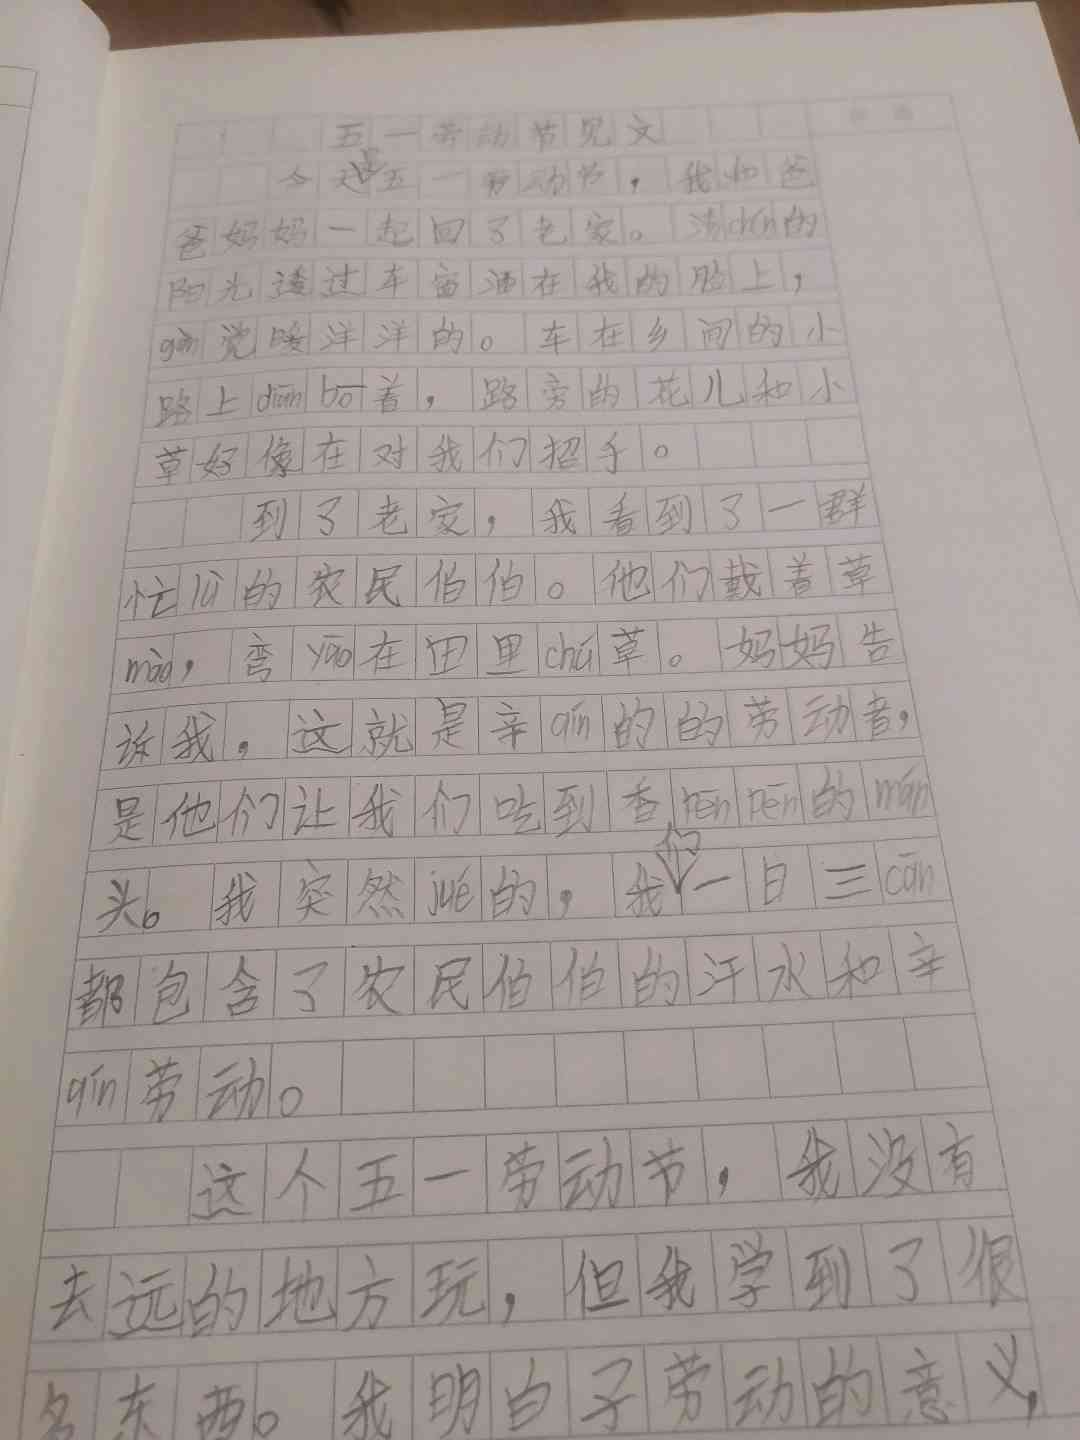 五一劳动节见文
今天是五一劳动节，我和爸
爸妈妈一起回了老家。清chén的
阳光透过车窗洒在我的脸上，
gǎn觉暖洋洋的。车在乡间的小
路上diān bō着，路旁的花儿和小
草好像在对我们招手。
到了老家，我看到了一群
忙lù的农民伯伯。他们戴着草
mào，弯yāo在田里chú草。妈妈告
诉我，这就是辛qín的的劳动者，
是他们让我们吃到香pēn pēn的mán
头。我突然jué的，我们一日三cān
都包含了农民伯伯的汗水和辛
qín劳动。
这个五一劳动节，我没有
去远的地方玩，但我学到了很
多东西。我明白了劳动的意义，